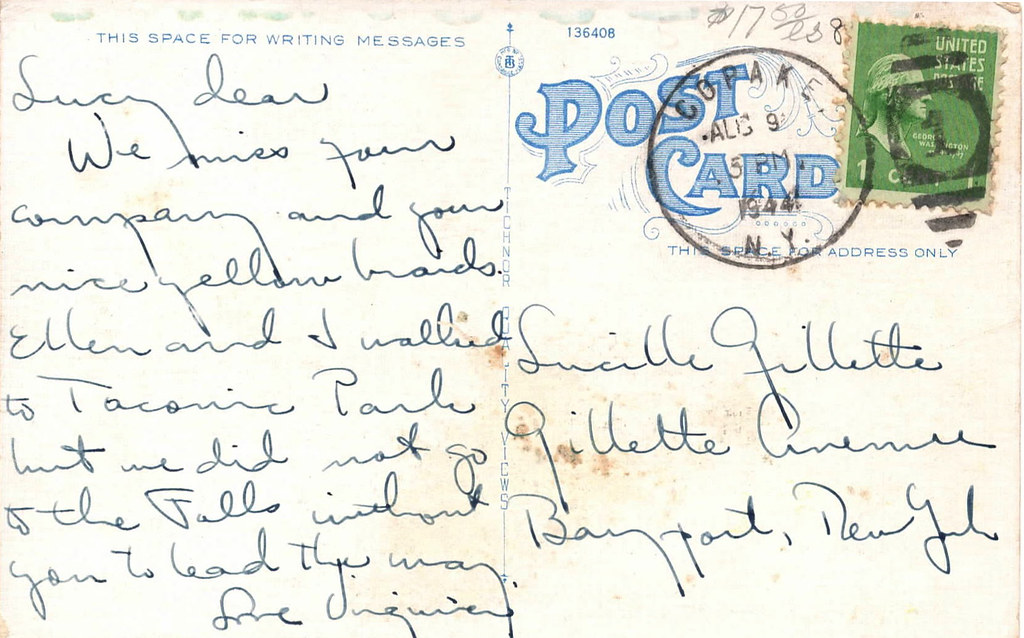 THIS SPACE FOR WRITING MESSAGES
Lucy dear
We miss your
company and your
nice yellow braids.
Ellen and I walked
to Taconic Park
but we did not go
to the Falls without
you to lead the way.
Love
TICHNOR QUALITY VIEWS
136408
$17 50
8
POST
CARD
COPAKE,
AUG 9
5 PM
1944
N.Y.
UNITED
STATES
POSTAGE
GEORGE
WASHINGTON
1 CENT 1
THIS SPACE FOR ADDRESS ONLY
Lucille Gillette
Gillette Avenue
Bayport, New York